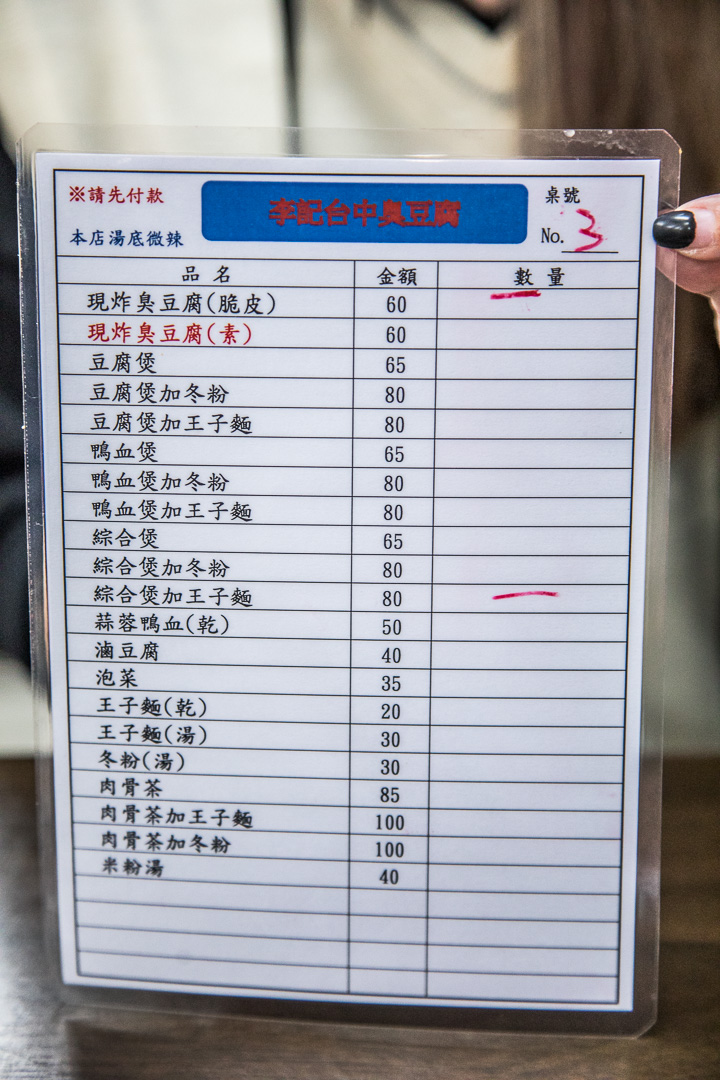 ※請先付款
李記台中臭豆腐
桌號
本店湯底微辣
No. 3
品名 金額 數量
現炸臭豆腐(脆皮) 60 一
現炸臭豆腐(素) 60
豆腐煲 65
豆腐煲加冬粉 80
豆腐煲加王子麵 80
鴨血煲 65
鴨血煲加冬粉 80
鴨血煲加王子麵 80
綜合煲 65
綜合煲加冬粉 80
綜合煲加王子麵 80 一
蒜蓉鴨血(乾) 50
滷豆腐 40
泡菜 35
王子麵(乾) 20
王子麵(湯) 30
冬粉(湯) 30
肉骨茶 85
肉骨茶加王子麵 100
肉骨茶加冬粉 100
米粉湯 40